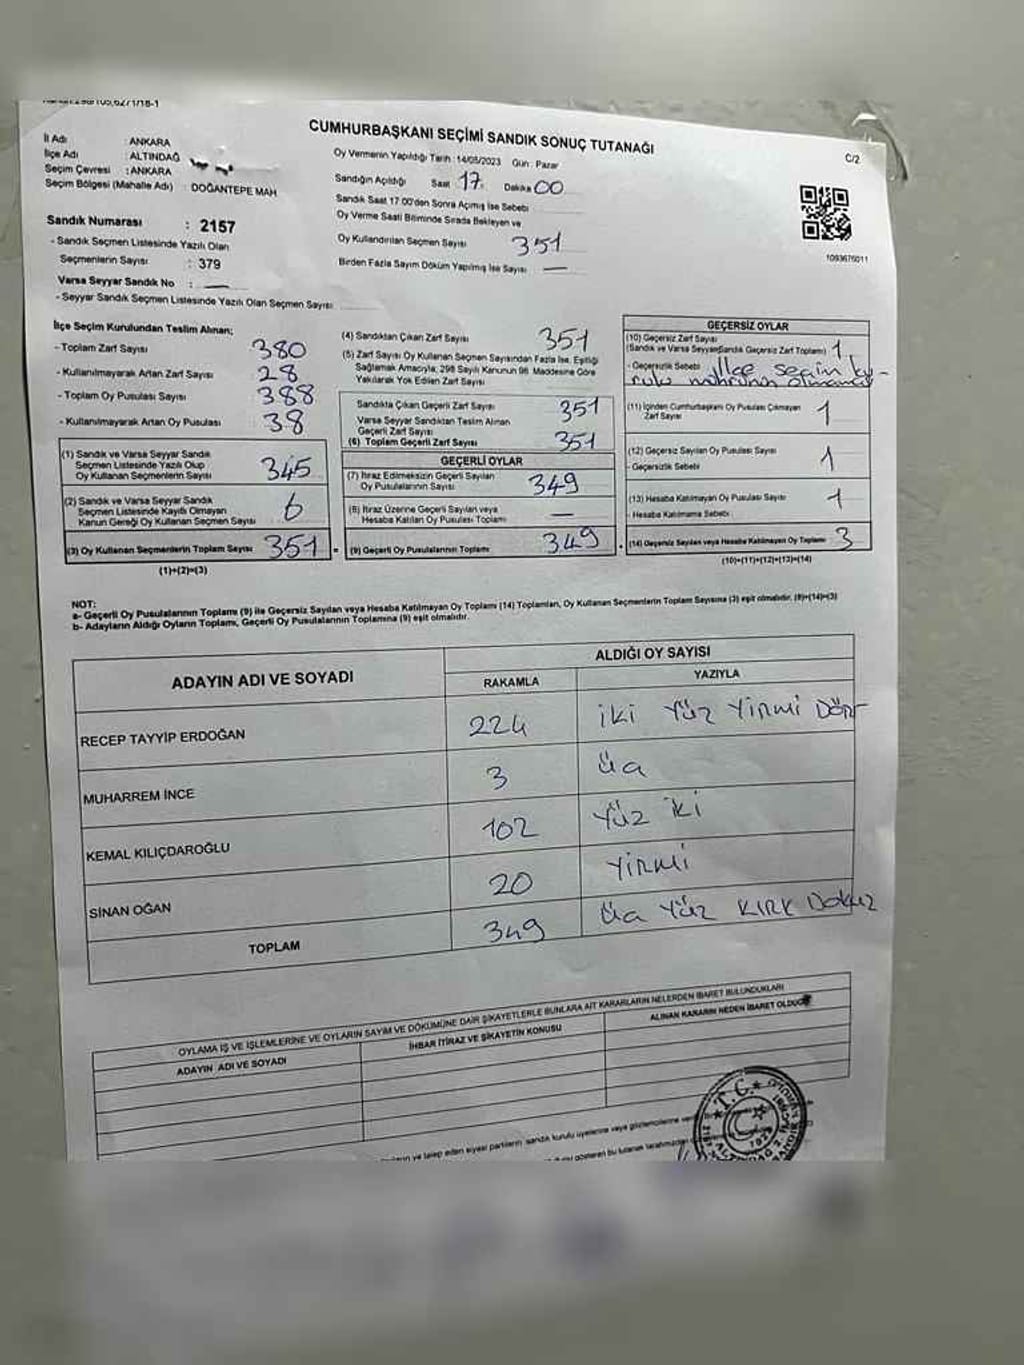 CUMHURBAŞKANI SEÇİMİ SANDIK SONUÇ TUTANAĞI
C/2
İl Adı : ANKARA
İlçe Adı : ALTINDAĞ
Seçim Çevresi : ANKARA
Seçim Bölgesi (Mahalle Adı) : DOĞANTEPE MAH
Sandık Numarası : 2157
- Sandık Seçmen Listesinde Yazılı Olan
Seçmenlerin Sayısı : 379
Varsa Seyyar Sandık No : —
- Seyyar Sandık Seçmen Listesinde Yazılı Olan Seçmen Sayısı:
Oy Vermenin Yapıldığı Tarih : 14/05/2023 Gün : Pazar
Sandığın Açıldığı Saat 17. Dakika 00
Sandık Saat 17.00'den Sonra Açımış İse Sebebi
Oy Verme Saati Bitiminde Sırada Bekleyen ve
Oy Kullandırılan Seçmen Sayısı 351
Birden Fazla Sayım Döküm Yapılmış İse Sayısı —
1093676011
İlçe Seçim Kurulundan Teslim Alınan;
- Toplam Zarf Sayısı 380
- Kullanılmayarak Artan Zarf Sayısı 28
- Toplam Oy Pusulası Sayısı 388
- Kullanılmayarak Artan Oy Pusulası 38
(1) Sandık ve Varsa Seyyar Sandık
Seçmen Listesinde Yazılı Olup
Oy Kullanan Seçmenlerin Sayısı 345
(2) Sandık ve Varsa Seyyar Sandık
Seçmen Listesinde Kayıtlı Olmayan
Kanun Gereği Oy Kullanan Seçmen Sayısı 6
(3) Oy Kullanan Seçmenlerin Toplam Sayısı 351 =
(1)+(2)=(3)
(4) Sandıktan Çıkan Zarf Sayısı 351
(5) Zarf Sayısı Oy Kullanan Seçmen Sayısından Fazla İse, Eşitliği
Sağlamak Amacıyla, 298 Sayılı Kanunun 98. Maddesine Göre
Yakılarak Yok Edilen Zarf Sayısı
Sandıkta Çıkan Geçerli Zarf Sayısı 351
Varsa Seyyar Sandıktan Teslim Alınan
Geçerli Zarf Sayısı
(6) Toplam Geçerli Zarf Sayısı 351
GEÇERLİ OYLAR
(7) İtiraz Edilmeksizin Geçerli Sayılan
Oy Pusulalarının Sayısı 349
(8) İtiraz Üzerine Geçerli Sayılan veya
Hesaba Katılan Oy Pusulası Toplamı —
(9) Geçerli Oy Pusulalarının Toplamı 349
GEÇERSİZ OYLAR
(10) Geçersiz Zarf Sayısı
(Sandık ve Varsa Seyyar Sandık Geçersiz Zarf Toplamı) 1
- Geçersizlik Sebebi İlçe seçim ku-
rulu mührünün olmaması
(11) İçinden Cumhurbaşkanı Oy Pusulası Çıkmayan
Zarf Sayısı 1
(12) Geçersiz Sayılan Oy Pusulası Sayısı 1
- Geçersizlik Sebebi
(13) Hesaba Katılmayan Oy Pusulası Sayısı 1
- Hesaba Katılmama Sebebi
(14) Geçersiz Sayılan veya Hesaba Katılmayan Oy Toplamı 3
(10)+(11)+(12)+(13)=(14)
NOT:
a- Geçerli Oy Pusulalarının Toplamı (9) ile Geçersiz Sayılan veya Hesaba Katılmayan Oy Toplamı (14) Toplamları, Oy Kullanan Seçmenlerin Toplam Sayısına (3) eşit olmalıdır. (9)+(14)=(3)
b- Adayların Aldığı Oyların Toplamı, Geçerli Oy Pusulalarının Toplamına (9) eşit olmalıdır.
ADAYIN ADI VE SOYADI
ALDIĞI OY SAYISI
RAKAMLA YAZIYLA
RECEP TAYYİP ERDOĞAN 224 iki Yüz Yirmi Dört
MUHARREM İNCE 3 üç
KEMAL KILIÇDAROĞLU 102 Yüz iki
SİNAN OĞAN 20 Yirmi
TOPLAM 349 üç Yüz KIRK Dokuz
OYLAMA İŞ VE İŞLEMLERİNE VE OYLARIN SAYIM VE DÖKÜMÜNE DAİR ŞİKAYETLERLE BUNLARA AİT KARARLARIN NELERDEN İBARET BULUNDUKLARI
ADAYIN ADI VE SOYADI
İHBAR İTİRAZ VE ŞİKAYETİN KONUSU
ALINAN KARARIN NEDEN İBARET OLDUĞU
talep eden siyasi partilerin sandık kurulu üyelerine veya gözlemcilerine
T.C.